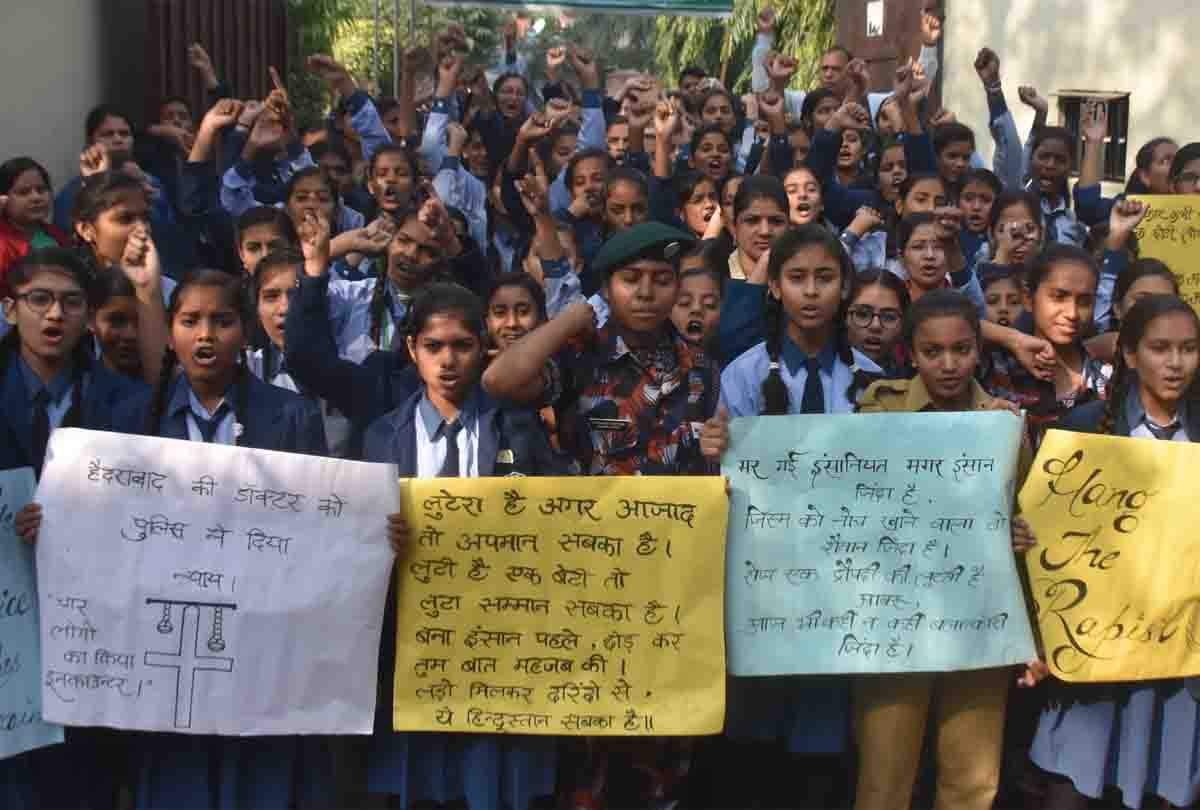 हैदराबाद की डॉक्टर को
पुलिस ने दिया
न्याय।
"चार
लोगो
का किया
इनकाउन्टर।"
लुटेरा है अगर आजाद
तो अपमान सबका है।
लुटी है एक बेटी तो
लुटा सम्मान सबका है।
बना इंसान पहले, छोड़ कर
तुम बात महजब की।
लड़ो मिलकर दरिंदो से,
ये हिन्दुस्तान सबका है॥
मर गई इंसानियत मगर इंसान
जिंदा है,
जिस्म को नोच खाने वाला वो
शैतान जिंदा है।
रोज एक द्रौपदी की लुटती है
आबरू,
आज भी कही न कही बलात्कारी
जिंदा है।
Hang
The
Rapist